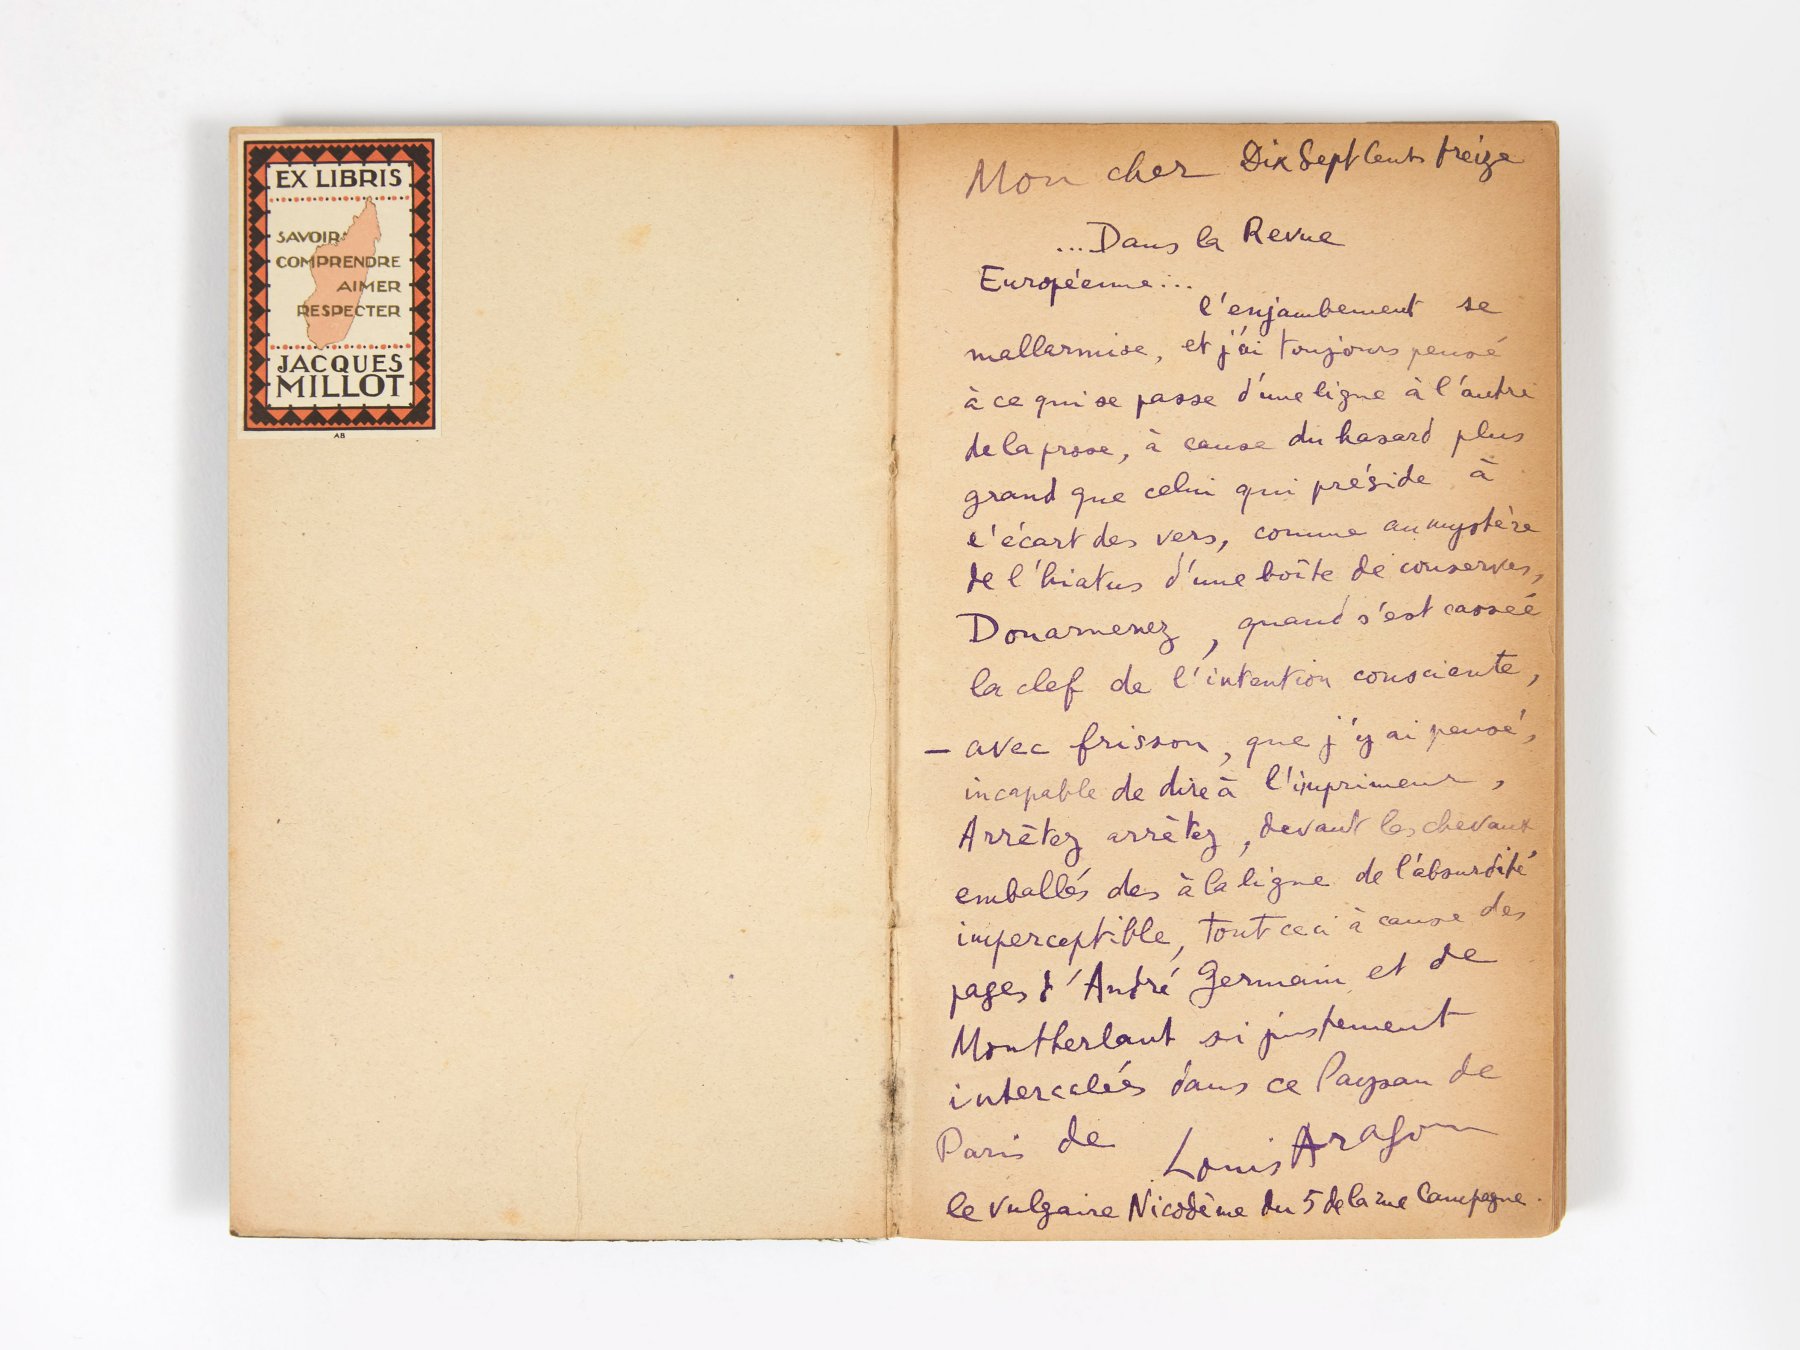 EX LIBRIS
SAVOIR
COMPRENDRE
AIMER
RESPECTER
JACQUES
MILLOT
AB
Mon cher Dix Sept Cents treize
...Dans la Revue
Européenne...
l'enjambement se
mallarmise, et j'ai toujours pensé
à ce qui se passe d'une ligne à l'autre
de la prose, à cause du hasard plus
grand que celui qui préside à
l'écart des vers, comme au mystère
de l'hiatus d'une boîte de conserves,
Douarnenez, quand s'est cassée
la clef de l'intention consciente,
— avec frisson, que j'y ai pensé,
incapable de dire à l'imprimeur,
Arrêtez arrêtez, devant les chevaux
emballés des à la ligne de l'absurdité
imperceptible, tout ceci à cause des
pages d'André Germain et de
Montherlant si justement
intercalées dans ce Paysan de
Paris de Louis Aragon
le vulgaire Nicodème du 5 de la rue Campagne.